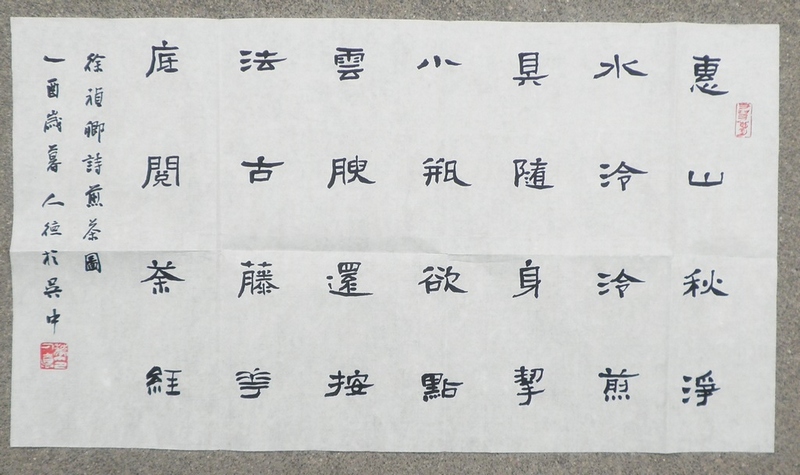 惠山秋淨
水泠泠煎
具随身挈
小瓶欲點
雲腴還按
法古藤華
底閱茶經
徐禎卿詩煎茶圖
乙酉歲暮人德於吳中